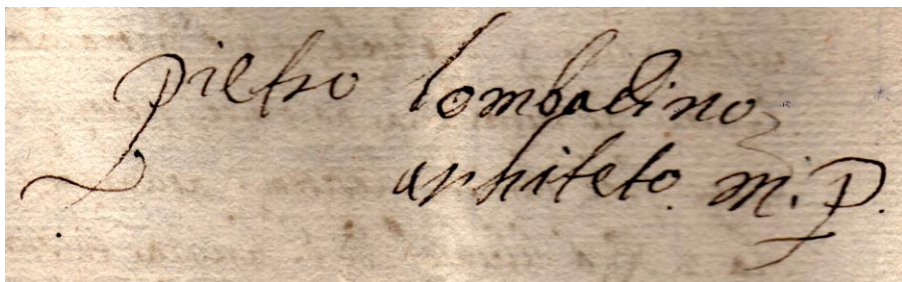 pietro lombadino
arshiteto. m. P.